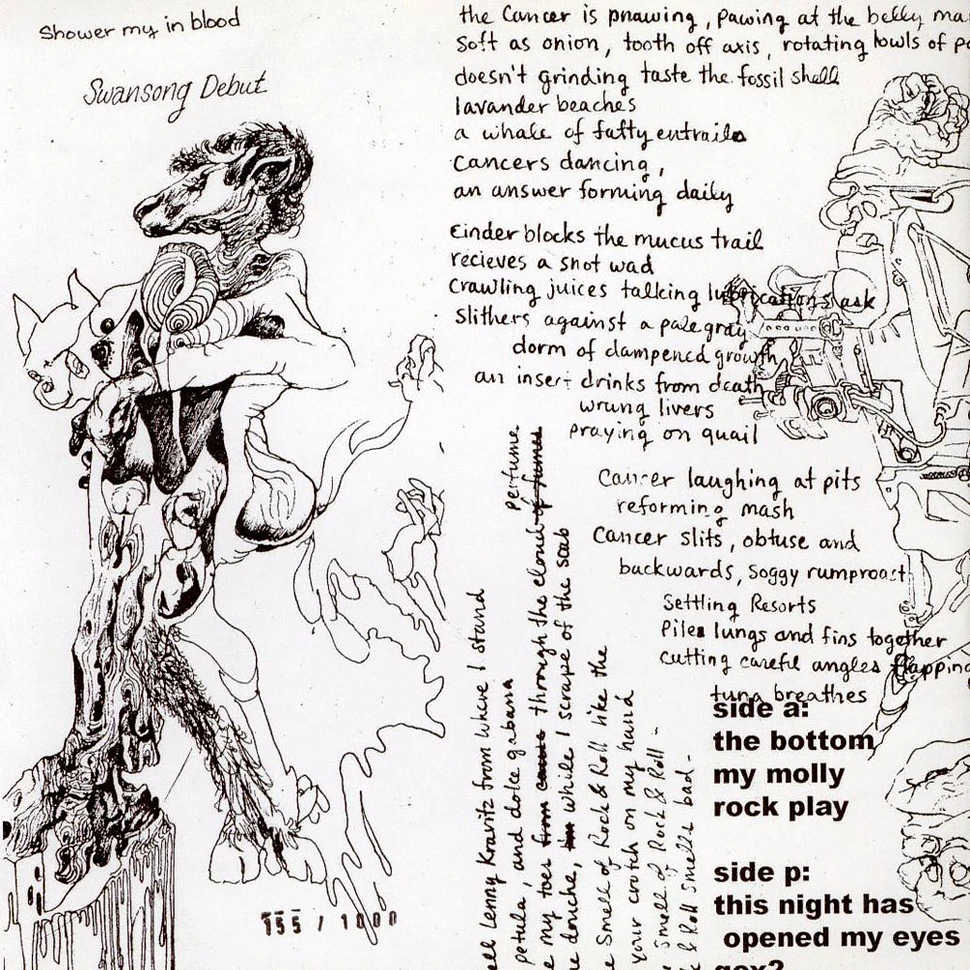 Shower my in blood
Swansong Debut
the Cancer is pnawing, pawing at the belly
Soft as onion, tooth off axis, rotating bowls of
doesn't grinding taste the fossil shell
lavander beaches
a whale of fatty entrails
Cancers dancing,
an answer forming daily
Einder blocks the mucus trail
recieves a snot wad
Crawling juices talking lubrications ask
Slithers against a pale gray
dorm of dampened growth
an insert drinks from death
wrung livers
praying on quail
Cancer laughing at pits
reforming mash
Cancer slits, obtuse and
backwards, soggy rumproast
Settling Resorts
Piles lungs and fins together
cutting careful angles flapping
tuna breathes
Lenny Kravitz from where I stand
petula, and dolce gabana
perfume
my toes from through the cloud of fumes
douche, while I scrape of the scab
Smell of Rock & Roll like the
your crotch on my hand
Smell of Rock & Roll -
& Roll smells bad -
side a:
the bottom
my molly
rock play
side p:
this night has
opened my eyes
gox?
155 / 1000